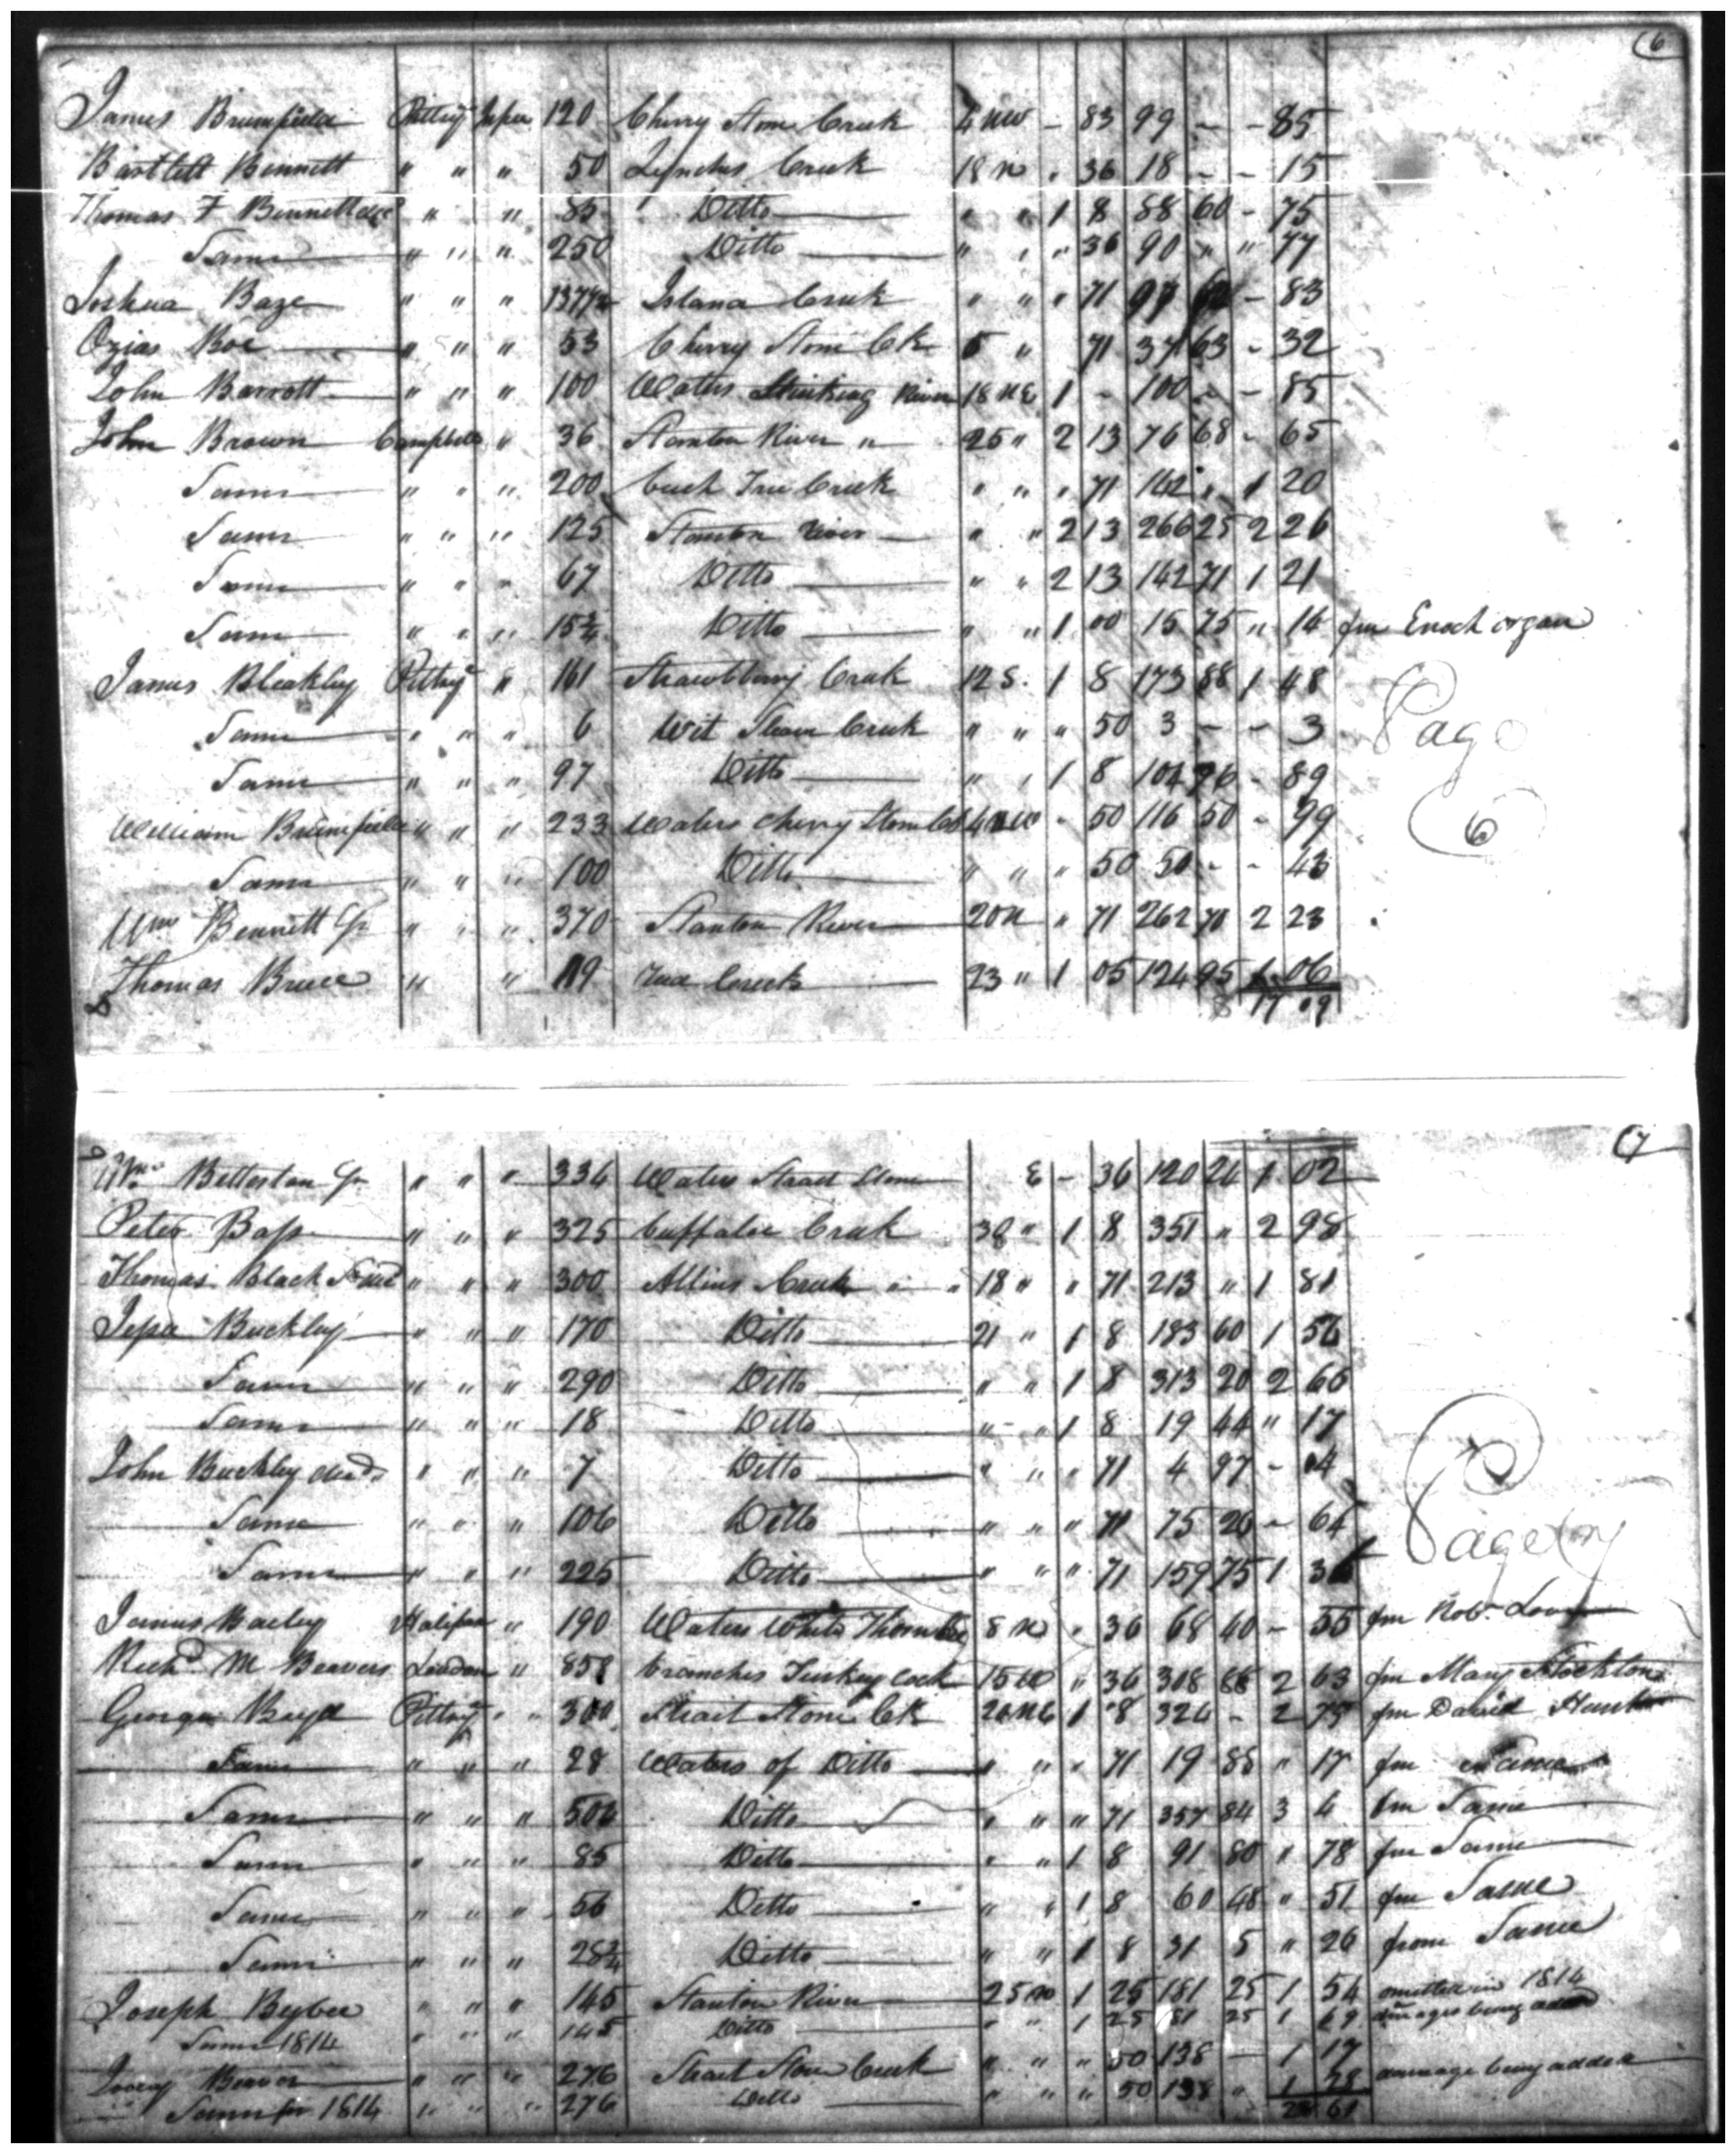 6
James Brumfield Pittsy fee 120 Cherry Stone Creek 4 NW - 83 99 - - 85
Bartlett Bennett " " " 50 Lynches Creek 18 N " 36 18 - - 15
Thomas F Bennett decd " " 85 Ditto " " 1 8 88 60 - 75
Same " " " 250 Ditto " " " 36 90 " " 77
Joshua Baze " " " 137½ Island Creek " " " 71 97 62 - 83
Ozias Boe " " " 53 Cherry Stone Ck 5 " 71 37 63 - 32
John Barrott " " " 100 Waters Stinking River 18 NE 1 - 100 - - 85
John Brown Campbell " 36 Stanton River " 25 " 2 13 76 68 - 65
Same " " " 200 Tree Creek " " " 71 142 " 1 20
Same " " " 125 Stanton River " " 2 13 266 25 2 26
Same " " " 67 Ditto " " 2 13 142 71 1 21
Same " " " 15¾ Ditto " " 1 00 15 75 " 14 fm Enoch organ
James Bleakley Pittsy " 161 Strawberry Creek 12 S. 1 8 173 88 1 48
Same " " " 6 Creek " " " 50 3 - - 3
Page
Same " " " 97 Ditto " " 1 8 104 76 - 89
William Brumfield " " " 233 Waters Cherry Stone Ck 4 NW - 50 116 50 - 99
6
Same " " " 100 Ditto " " " 50 50 - - 43
Wm Bennett Jr " " " 370 Stanton River 20 N " 71 262 70 2 23
Thomas Bruce " " 119 Creek 23 " 1 05 124 95 1 06
17 09
7
Wm Betterton Jr " " " 334 Waters Strait Stone E - 36 120 24 1 02
Peter Bass " " " 325 buffaloe Creek 38 " 1 8 351 " 2 98
Thomas Black " " " 300 Allins Creek " " 18 " " 71 213 " 1 81
Jesse Buckley " " " 170 Ditto 21 " 1 8 183 60 1 56
Same " " " 290 Ditto " " 1 8 313 20 2 66
Same " " " 18 Ditto " - " 1 8 19 44 " 17
John Buckley decd " " " 7 Ditto " " " 71 4 97 - 04
Same " " " 106 Ditto " " " 71 75 26 - 64
Page 7
Same " " " 225 Ditto " " " 71 159 75 1 36
James Bailey Halifax " 190 Waters White Thorn 8 N " 36 68 40 - 55 fm Robt.
Richd M Beavers Loudon " 858 branches Turkey cock 15 W " 36 308 88 2 63 fm Mary Stockton
George Boyd Pittsy " " 300 Strait Stone Ck 20 NE 1 8 324 - 2 75 fm David Hunt
Same " " " 28 Waters of Ditto " " " 71 19 88 " 17 fm Same
Same " " " 504 Ditto " " " 71 357 84 3 4 fm Same
Same " " " 85 Ditto " " 1 8 91 80 " 78 fm Same
Same " " " 56 Ditto " " 1 8 60 48 " 51 fm Same
Same " " " 28¾ Ditto " " 1 8 31 5 " 26 from Same
Joseph Bybee " " " 145 Stanton River 25 N 1 25 181 25 1 54 omitted in 1814
Same 1814 " " " 145 Ditto " " 1 25 81 25 1 69 damages being added
Beaver " " " 276 Strait Stone Creek " " " 50 138 - 1 17
Same for 1814 " " " 276 Ditto " " " 50 138 " 1 28 damage being added
28 61